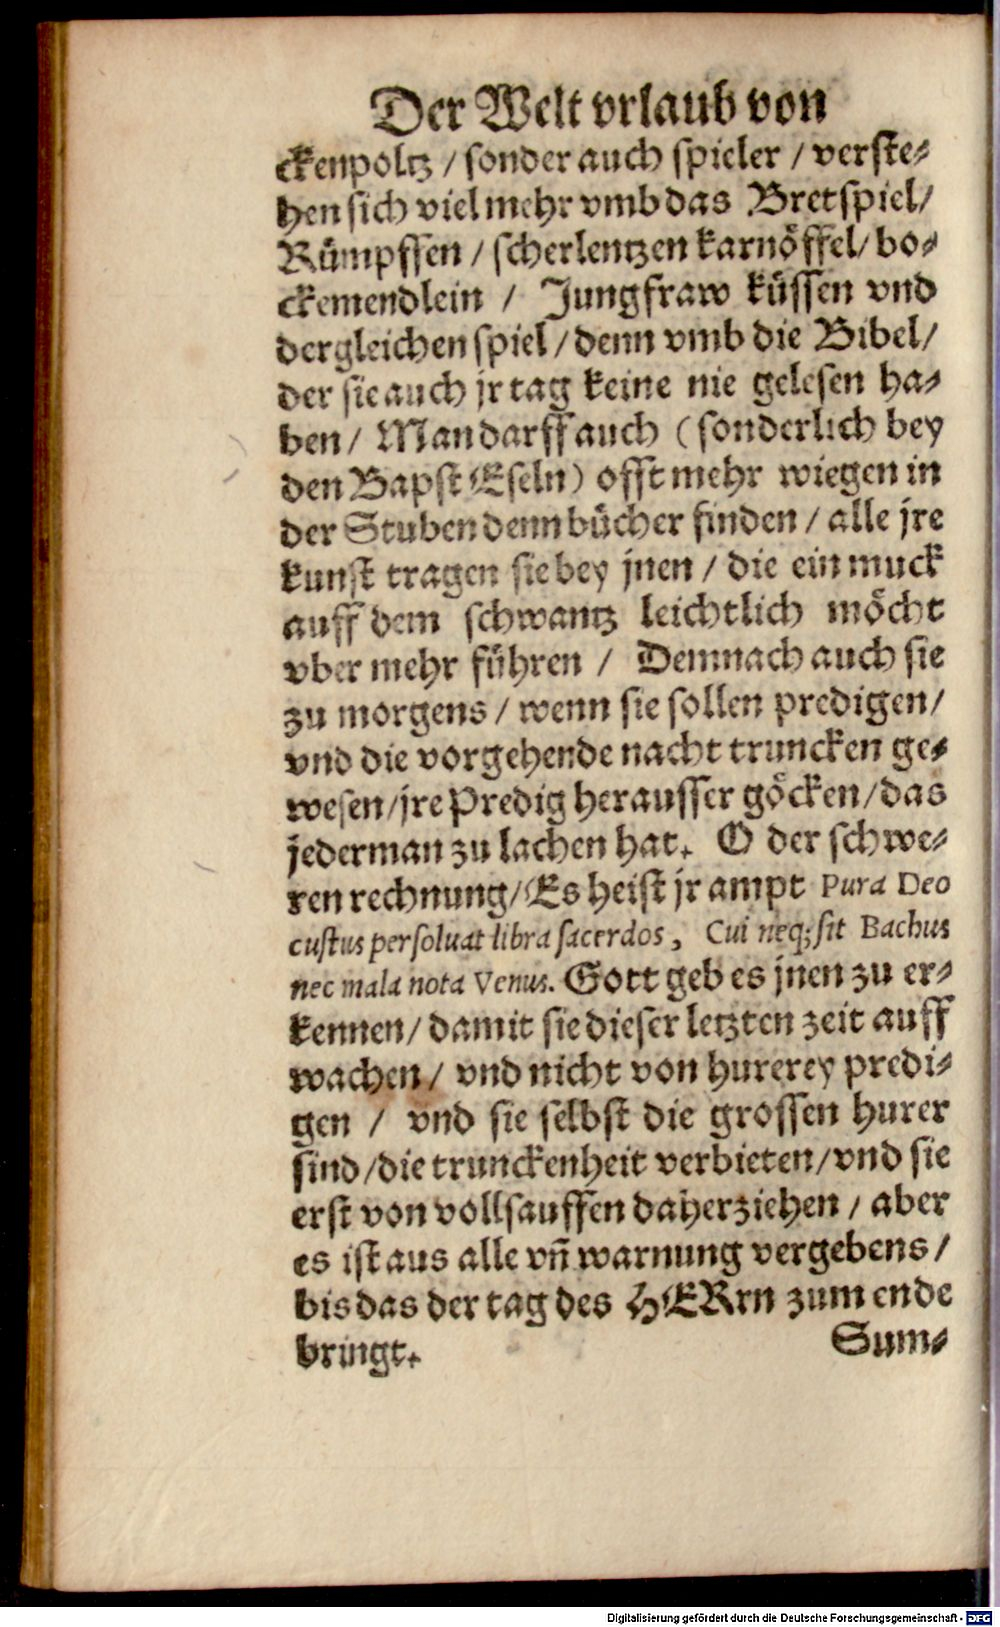 Der Welt vrlaub von
ckenpoltz / sonder auch spieler / verste⸗
hen sich viel mehr vmb das Bretspiel/
Rümpffen / scherlentzen karnöffel/ bo⸗
ckemendlein / Jungfraw küssen vnd
dergleichen spiel / denn vmb die Bibel/
der sie auch jr tag keine nie gelesen ha⸗
ben/ Man darff auch (sonderlich bey
den Bapst Eseln) offt mehr wiegen in
der Stuben denn bücher finden / alle jre
kunst tragen sie bey jnen / die ein muck
auff dem schwantz leichtlich möcht
vber mehr führen / Demnach auch sie
zu morgens / wenn sie sollen predigen/
vnd die vorgehende nacht truncken ge⸗
wesen/jre Predig herausser göcken/das
jederman zu lachen hat. O der schwe⸗
ren rechnung/Es heist jr ampt Pura Deo
custus persoluat libra sacerdos, Cui neq; sit Bachus
nec mala nota Venus. Gott geb es jnen zu er⸗
kennen/ damit sie dieser letzten zeit auff
wachen/ vnd nicht von hurerey predi⸗
gen / vnd sie selbst die grossen hurer
sind/die trunckenheit verbieten/vnd sie
erst von vollsauffen daherziehen / aber
es ist aus alle vñ warnung vergebens /
bis das der tag des HERrn zum ende
bringt. Sum⸗
Digitalisierung gefördert durch die Deutsche Forschungsgemeinschaft - DFG